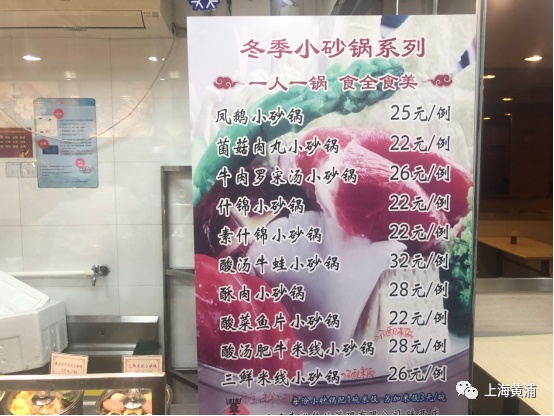 冬季小砂锅系列
一人一锅 食全食美
凤鹅小砂锅 25元/例
菌菇肉丸小砂锅 22元/例
牛肉罗宋汤小砂锅 26元/例
什锦小砂锅 22元/例
素什锦小砂锅 22元/例
酸汤牛蛙小砂锅 32元/例
酥肉小砂锅 28元/例
酸菜鱼片小砂锅 22元/例
酸汤肥牛米线小砂锅 28元/例
三鲜米线小砂锅 26元/例
上海黄浦